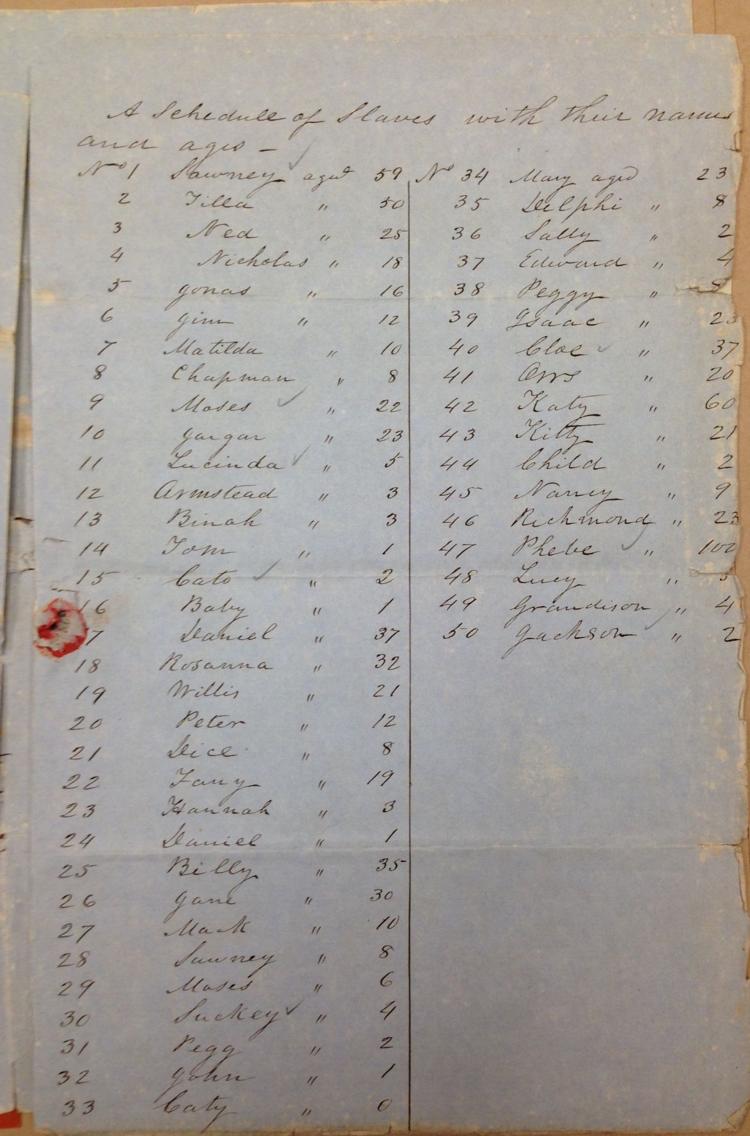 A Schedule of Slaves with their names
and ages -
No 1 Sawney aged 59
2 Tilla " 50
3 Ned " 25
4 Nicholas " 18
5 Jonas " 16
6 Jim " 12
7 Matilda " 10
8 Chapman " 8
9 Moses " 22
10 " 23
11 Lucinda " 5
12 Armstead " 3
13 Binah " 3
14 Tom " 1
15 Cato " 2
16 Baby " 1
7 Daniel " 37
18 Rosanna " 32
19 Willis " 21
20 Peter " 12
21 Dice " 8
22 Fany " 19
23 Hannah " 3
24 Daniel " 1
25 Billy " 35
26 Jane " 30
27 Mack " 10
28 Sawney " 8
29 Moses " 6
30 Suckey " 4
31 Pegg " 2
32 John " 1
33 Caty " 0
No 34 Mary aged 23
35 Delphi " 8
36 Sally " 2
37 Edward " 4
38 Peggy "
39 Isaac " 23
40 Cloe " 37
41 Orrs " 20
42 Katy " 60
43 Kitty " 21
44 Child " 2
45 Nancy " 9
46 Richmond " 23
47 Phebe " 102
48 Lucy "
49 Grandison " 4
50 Jackson " 2